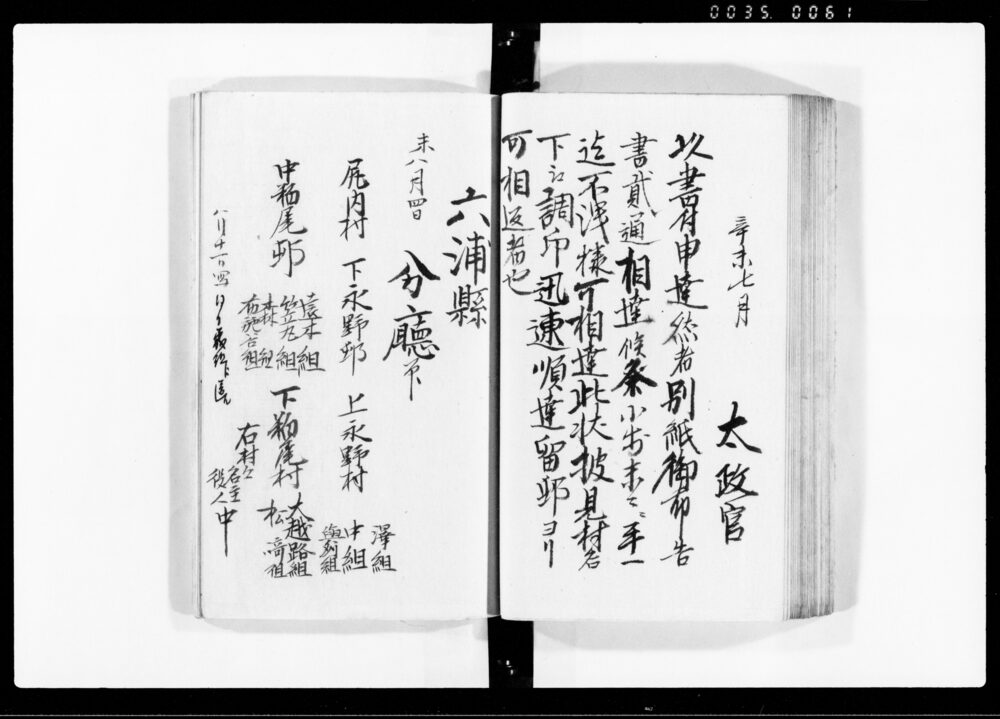 0035 0061
辛未七月
太政官
以書付申達然者別紙御布告
書貳通相達候条小前末々ニ至
迄不洩様可相達此状披見村名
下江調印迅速順達留邨ヨリ
可相返者也
六浦縣
分廳印
未八月四日
尾内村 下永野邨 上永野村
澤組
中組
中粕尾邨
笠丸組
森組
布施谷組
下粕尾村
大越路組
松崎組
右村々
名主
役人中